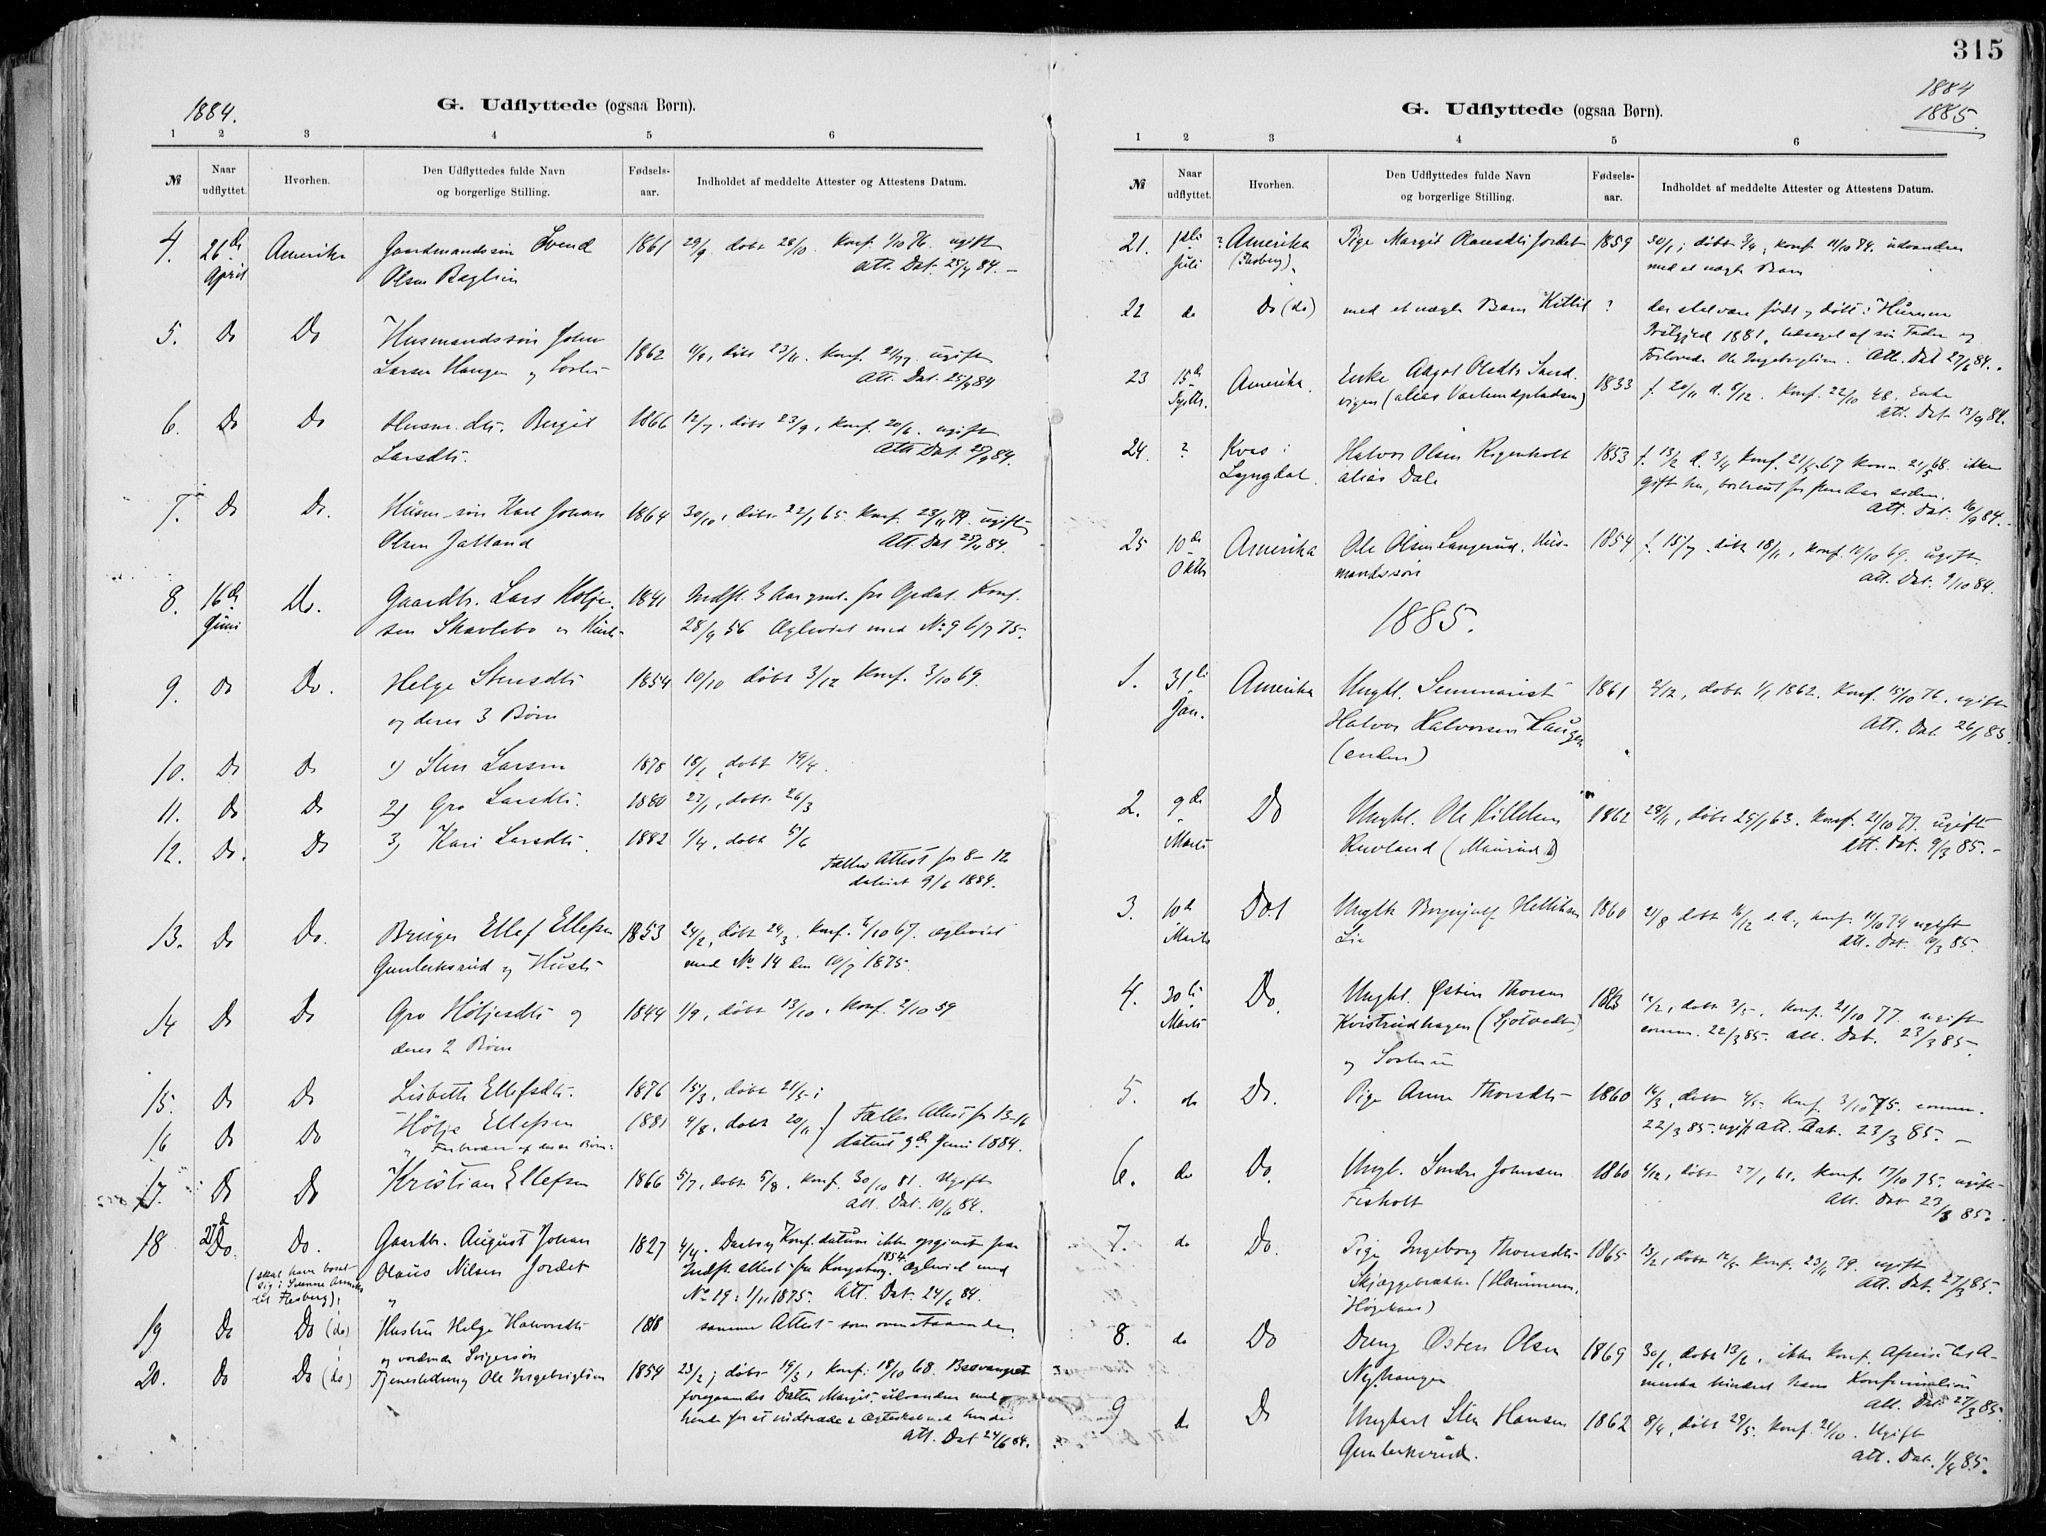 315
1884.
G. Udflyttede (ogsaa Børn).
1 2 3 4 5 6
№ Naar udflyttet. Hvorhen. Den Udflyttedes fulde Navn og borgerlige Stilling. Fødselsaar. Indholdet af meddelte Attester og Attestens Datum.
4. 26de April Amerika Gaardmandssøn Svend 1861 29/9 døbt 28/10. Konf. 1/10 76. ugift
Olsen Baglien Att. Dat. 25/4 84.
5. Do Do Husmandssøn John
Larsen Haugen og Søster 1862 døbt 23/11. Konf. ugift
Att. Dat. 25/4 84
6. Do Do Husm. dtr. Bergit 1866 12/7. døbt 23/9, Konf. 20/6. ugift
Larsdtr. Att. Dat. 25/4 84.
7. Do Do. Husm. søn Karl Johan 1864 30/10, døbt 22/1 65. Konf. 23/11 79. ugift
Olsen Jalland Att. Dat. 84.
8. 16de Juni Do. Gaardbr. Lars Holje- 1841 Indft. har gml. fra Opdal. Konf.
sen Skavlebo og Hustr. 28/9 56 Ægteviet med No 9 6/7 75.
9. Do Do. Helge Stensdtr 1854 10/10 døbt 3/12 Konf. 3/10 69.
og deres 3 Børn
10. Do Do 1) Sten Larsen 1878 18/1, døbt 19/4.
11. Do Do 2) Gro Larsdtr. 1880 27/1, døbt 26/3
12. Do. Do 3) Kari Larsdtr. 1882 1/4, døbt 5/6
Fælles Attest for 8-12
dateret 9/6 1884.
13. Do Do. Bruger Ellef Ellefsen 1853 24/2, døbt 29/3. Konf. 2/10 67. Ægteviet
Gunleiksrud og Hustr. med No 14 den 10/7 1875.
14 Do Do Gro Höljesdtr og 1844 1/9, døbt 13/10, Konf. 2/10 59
deres 2 Børn
15. Do Do Lisbeth Ellefsdtr. 1876 15/3, døbt 21/5
16 Do Do Hölje Ellefsen 1881 4/8, døbt 20/11. Fælles Attest for 13-16
dateret 9de Juni 1884.
17. Do Do Kristian Ellefsen 1866 5/7, døbt 5/8, Konf. 30/10 81. Ugift
Att. Dat. 10/6 84.
18 27d Do. Do. Gaardbr. August Johan 1827 4/4. Daabs og Konf. datum ikke opgivet paa
(skal have boet Olaus Nilsen Jordet Indft. attest fra Kongsberg. 1854. Ægteviet med
til Flesberg), No 19: 1/11 1875. Att. Dat. 24/6 84.
19 Do Do (do) Hustru Helge Halvorsdtr 1818 samme Attest som ovenstaaende.
og vordende Svigersøn
20. Do Do (do) Tjenestedreng Ole Ingebrigtsen 1854 23/2; døbt 19/3, Konf. 18/10 68. Besvangret
foregaaendes Datter Margit. udvandrer med
hende for at indtræde i Ægteskab med hende
Att. Dat 24/6 84.
1884
1885.
G. Udflyttede (ogsaa Børn).
1 2 3 4 5 6
№ Naar udflyttet. Hvorhen. Den Udflyttedes fulde Navn og borgerlige Stilling. Fødselsaar. Indholdet af meddelte Attester og Attestens Datum.
21. Juli ? Amerika Pige Margit Olausdtr Jordet 1859 30/1; døbt 3/4, Konf. 11/10 74. udvandrer
(Flesberg). med et uægte Barn
22 do Do (do) med et uægte Barn Kittil ? der skal være født og døbt i
Prstgjeld 1881. af sin Fader og
Forlovede Ole Ingebrigtsen. Att. Dat 27/6 84.
23 15de Septbr. Amerika. Enke Aagot Olsdtr Sand- 1833 f. 20/11 d. 8/12. Konf. 22/10 48. Enke
vigen (alias ) Att. Dat. 13/9 84.
24. ? Kvas i Lyngdal. Halvor Olsen Rigenholt 1853 f. 13/2 d. 3/4 Konf. 21/5 67 Kom. 21/5 68. ikke
alias Dale gift her, bortreist for flere Aar siden.
Att. Dat. 16/9 84.
25 10de Oktbr Amerika Ole Olsen Langerud, Hus- 1854 f. 15/7. døbt 18/11, Konf. 10/10 69. ugift
mandssøn Att. Dat. 9/10 84.
1885.
1. 31te Jan. Amerika Ungkl. Seminarist 1861 2/12, døbt 1/1 1862. Konf. 15/10 76. ugift
Halvor Halvorsen Haugen Att. Dat. 26/1 85.
2. 9de Marts Do Ungkl. Ole Killelsen 1862 28/11, døbt 25/1 63. Konf. 21/10 77. ugift
Ruvland (Maurud) Att. Dat. 9/3 85.
3. 10d Marts Do. Ungk. Borgejulf Hellihsen 1860 21/8 døbt 16/12 s.a., Konf. 11/10 74 ugift
Lie Att. Dat. 10/3 85.
4. 30te Marts Do. Ungkl. Østen Thorsen 1863 12/2, døbt 3/5, Konf. 21/10 77. ugift
Kvistrudhagen (Sjotvedt) comm. 22/3 85. Att. Dat. 23/3 85.
og Søsteren
5. do Do. Pige Anne Thorsdtr 1860 16/3, døbt 4/5. Konf. 3/10 75. comm.
22/3 85. ugift Att. Dat. 23/3 85.
6. do Do. Ungk. Sondre Johnsen 1860 4/12, døbt 27/1 61. Konf. 17/10 75. ugift
Fisholt Att. Dat 27/3 85.
7. do Do. Pige Ingeborg Thorsdtr 1865 13/2, døbt 12/5 Konf. 23/11 79. ugift
Skjæggebrække (Hammeren, Att. Dat. 27/3 85.
8. do Do Dreng Østen Olsen 1869 30/1, døbt 13/2, ikke Konf. Afreise til A-
Nyhaugen merika hindret hans Konfirmation
Att. Dat. 27/3 85.
9 do Do Ungkarl Sten Hansen 1862 8/4, døbt 29/5. Konf. 21/10. Ugift
Gunleiksrud. Att. Dat. 1/4 85.